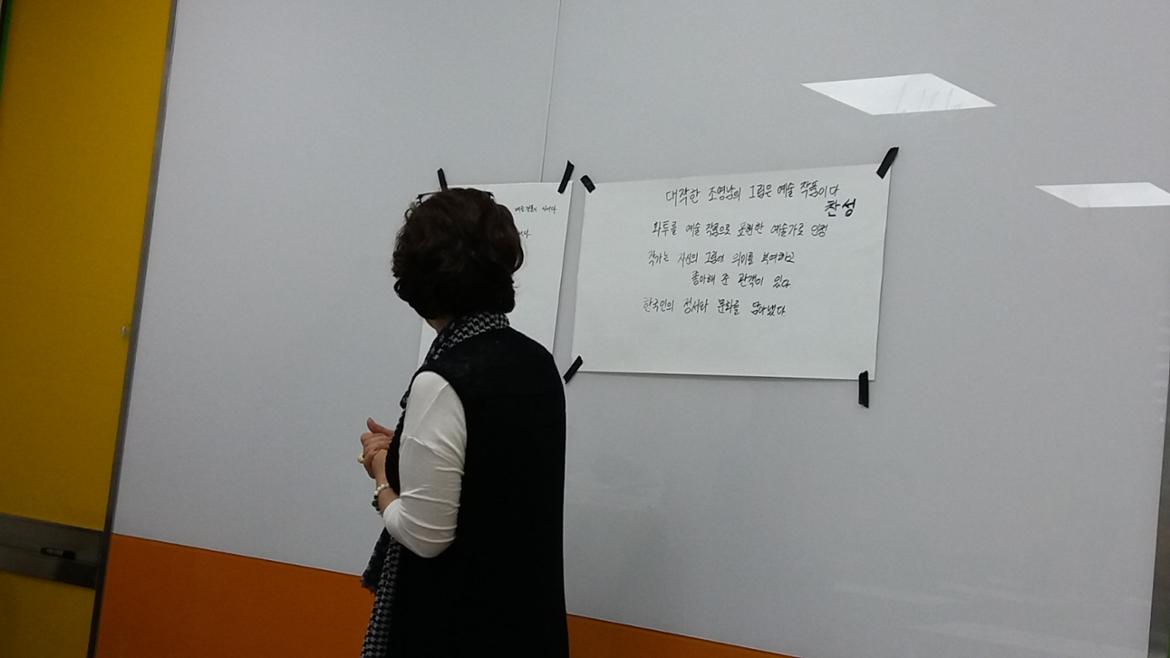 예술 작품이 아니다
대작한 조영남의 그림은 예술 작품이다
찬성
화투를 예술 작품으로 표현한 예술가로 인정
작가는 자신의 그림에 의미를 부여하고
좋아해 준 관객이 있다
한국인의 정서와 문화를 담아냈다